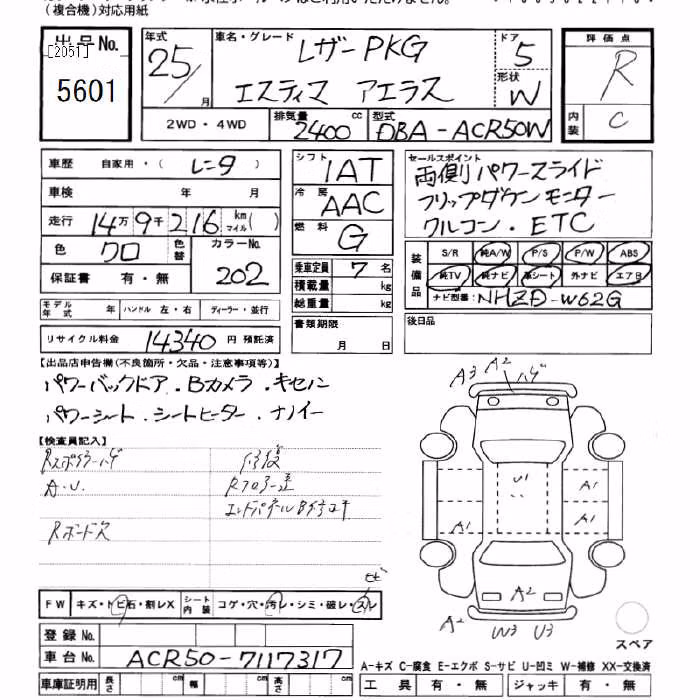 (複合機)対応用紙
出品No.
[2051]
5601
年式
25/
月
車名・グレード
レザーPKG
エスティマ アエラス
ドア
5
形状
W
評価点
R
内装
C
2WD・4WD
排気量
2400 cc
型式
DBA-ACR50W
車歴 自家用・(レンタ)
車検 年 月
走行 14万9千216 km マイル( )
色 クロ
色替
カラーNo.
202
保証書 有・無
シフト
IAT
冷房
AAC
燃料
G
乗車定員 7 名
積載量 kg
総重量 kg
セールスポイント
両側パワースライド
フリップダウンモニター
クルコン・ETC
装備品
S/R 純A/W P/S P/W ABS
純TV 純ナビ 革シート 外ナビ エアB
ナビ型番: NHZD-W62G
モデル年式 年 ハンドル 左・右 ディーラー・並行
リサイクル料金 14340 円 預託済
書類期限
月 日
後日品
【出品店申告欄(不良箇所・欠品・注意事項等)】
パワーバックドア・Bカメラ・キセノン
パワーシート・シートヒーター・ナノイー
【検査員記入】
Rスポイラーハゲ
A.U.
Rボード欠
修復
Rフロアー歪
エンドパネルB修キ
A3 A2
ハゲ
U1
A1
A1
A1
A2
A2
W3 U3
スペア
FW キズ・トビ石・割レX
シート内装 コゲ・穴・汚レ・シミ・破レ・スレ
登録No.
車台No. ACR50-7117317
車庫証明用 長さ cm 幅 cm 高さ cm
A-キズ C-腐食 E-エクボ S-サビ U-凹ミ W-補修 XX-交換済
工具 有・無 ジャッキ 有・無